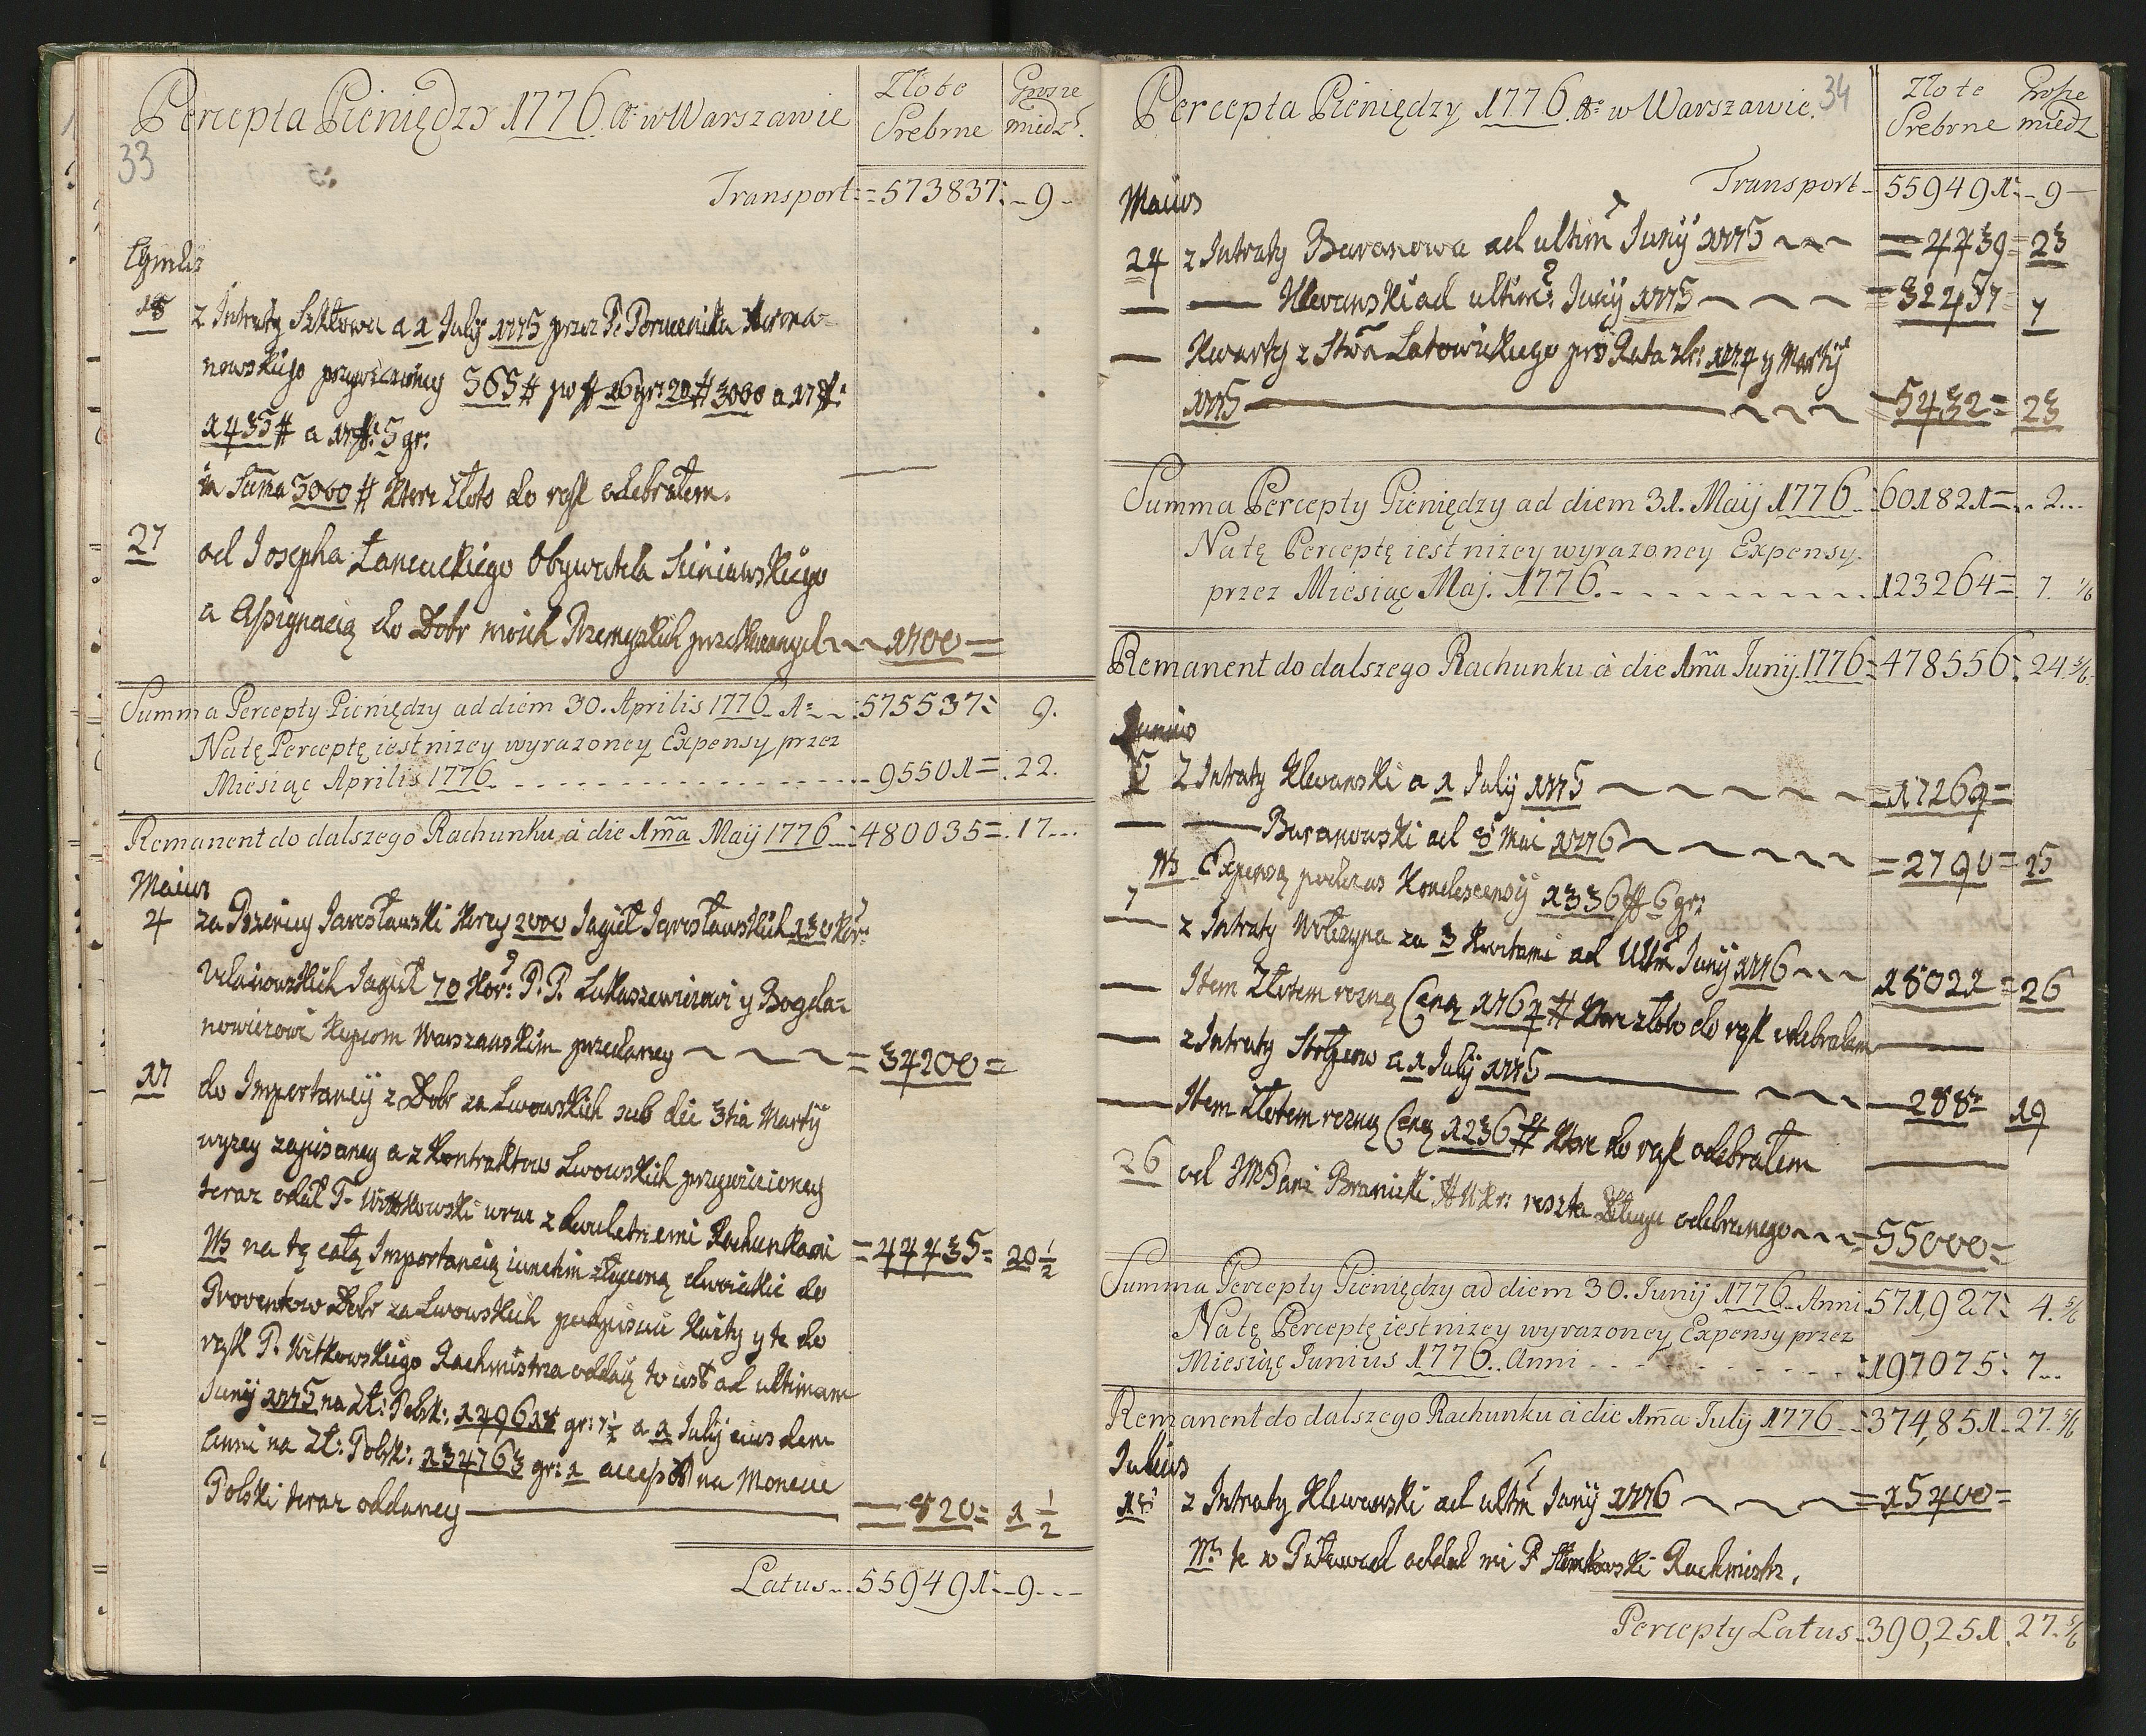 Percepta Pieniędzy 1776. Ao w Warszawie
Złote Srebrne
Grosze miedz:
33
Transport = 573837: - 9 -
Aprilis
18 z Intraty Szkłowa a 1 July 1775 przez P. Porucznika
nowskiego przywiezioney 565 # po ff 16 gr: 20 # 3000 a 17 ff:
1435 # a 17 ff: 5 gr:
in Suma 5000 # ktore Złoto do rąk odebrałem.
27 od Josepha Łancuckiego Obywatela Siniawskiego
a Assignacią do Dobr moich Przemyskich przekazanych 1700 =
Summa Percepty Pieniędzy ad diem 30. Aprilis 1776. A: 575537: 9.
Na tę Perceptę iest nizey wyrazoney Expensy przez
Miesiąc Aprilis 1776. 95501 = 22.
Remanent do dalszego Rachunku à die 1ma Maij 1776 480035 = 17
Maius
4 za Pszenicy Jarosławski Korcy 2000 Jagieł Jarosławskich 130 Kor:
Jagieł 70 Kor: P. P. Łukaszewiczowi y Bogda-
nowiczowi Kupcom Warszawskim przedaney = 34200 =
17 do Importancij z Dobr za Lwowskich sub die 3tia Martij
wyzey zapisaney a z Kontraktow Lwowskich przywiezioney
teraz oddał P. Witkowski wraz z dwuletniemi Rachunkami = 44435 = 20 1/2
NB na tę całą Importancią iunctim złączoną dwoiakie do
Proventow Dobr za Lwowskich podpisuię Kwity y te do
rąk P. Witkowskiego Rachmistrza oddaię to iest ad ultimam
Junij 1775 na Zł: Polsk: 149618 gr: 7 1/2 a 1 July eiusdem
Anni na Zł: Polsk: 134763 gr: 1 na Monecie
Polski teraz oddaney 820 = 1 1/2
Latus 559491 - 9
Percepta Pieniędzy 1776. Ao w Warszawie.
34
Złote Srebrne
Grosze miedz
Transport 559491: - 9 -
Maius
24 z Intraty Baranowa ad ultim Junij 1775 = 4439 = 23
Klewanski ad ultim: Junij 1775 = 32457 = 7
Kwarty z Stwa Latowickiego pro Rata Xbr: 1774 y Martij
1775 5432 = 23
Summa Percepty Pieniędzy ad diem 31. Maij 1776 601821 = 2
Na tę Perceptę iest nizey wyrazoney Expensy.
przez Miesiąc Maj. 1776. 123264 = 7. 1/6
Remanent do dalszego Rachunku à die 1ma Junij 1776 = 478556: 24 5/6
Junius
5 Z Intraty Klewanski a 1 July 1775 = 17269 =
Baranowski ad 8 Mai 1776 = 2790 = 15
NB Expensą podczas Kondescensij 1336 ff 6 gr:
7 z Intraty Wołczyna za 3 Kwitami ad Ultim Junij 1776 18021 = 26
Item Złotem rozną Ceną 1764 # ktore złoto do rąk odebrałem
z Intraty a 1 July 1775 288 = 19
Item Złotem rozną Ceną 1236 # ktore do rąk odebrałem
26 od JMPani Branicki HWKr: reszta Długu odebranego = 55000 =
Summa Percepty Pieniędzy ad diem 30. Junij 1776. Anni 571,927: 4. 5/6
Na tę Perceptę iest nizey wyrazoney Expensy przez
Miesiąc Junius 1776. Anni 197075: 7
Remanent do dalszego Rachunku à die 1ma July 1776 374,851. 27. 5/6
Julius
18 z Intraty Klewanski ad ultim Junij 1776 = 15400 =
NB te w Puławach oddał mi P Rachmistrz.
Percepty Latus 390,251. 27. 5/6